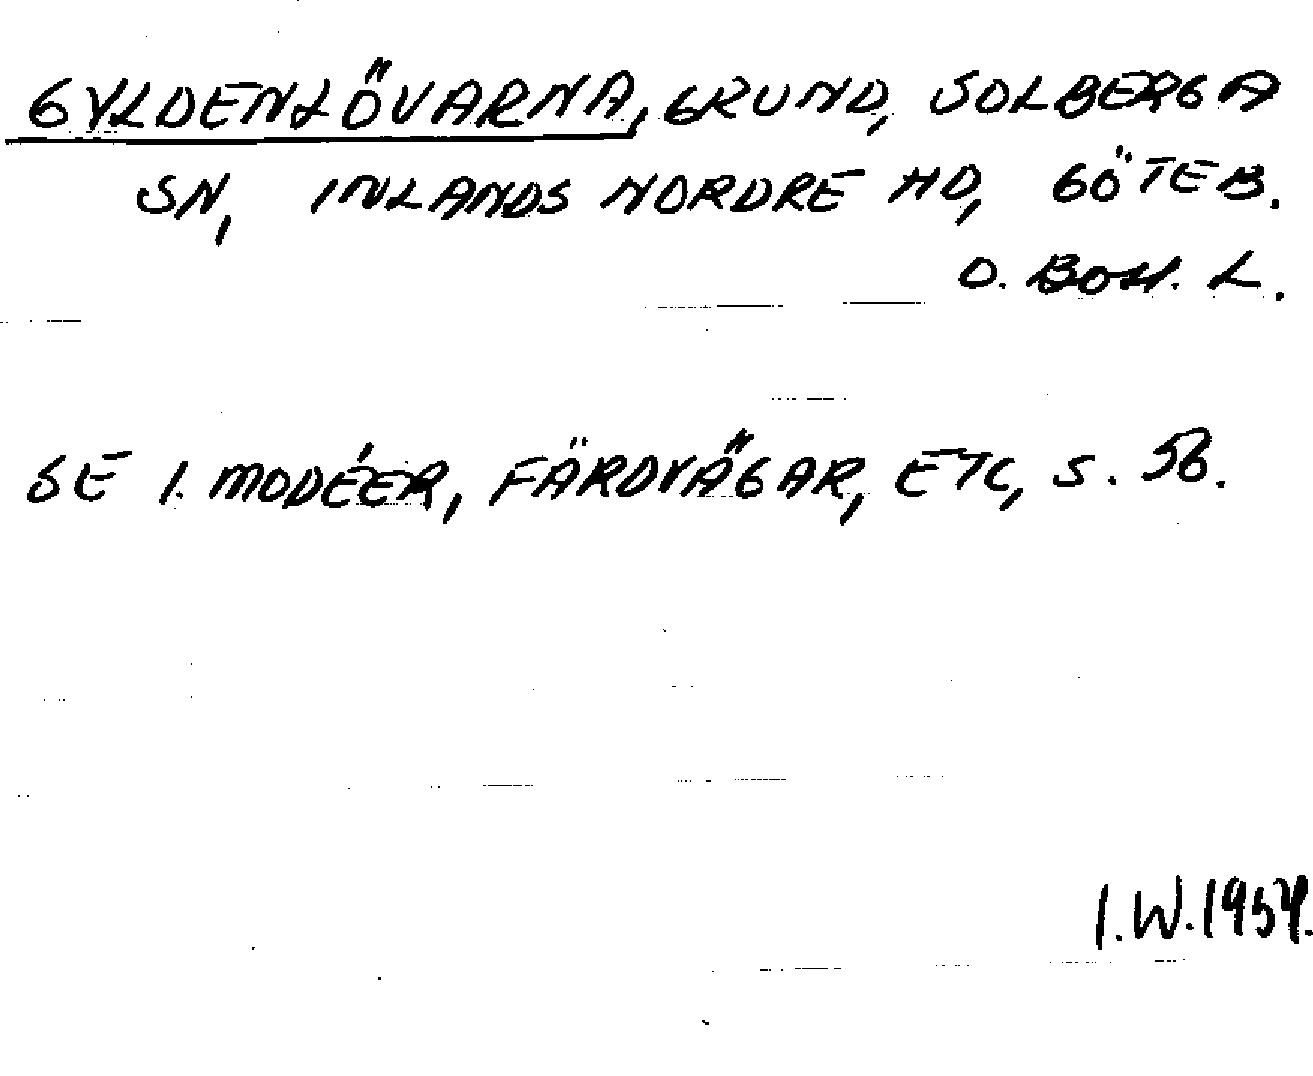 GYLDENLÖVARNA, GRUND, SOLBERGA
SN, INLANDS NORDRE HD, GÖTEB.
O. BOH. L.
SE I. MODÉER, FÄRDVÄGAR, ETC, S. 56.
I.W. 1954.